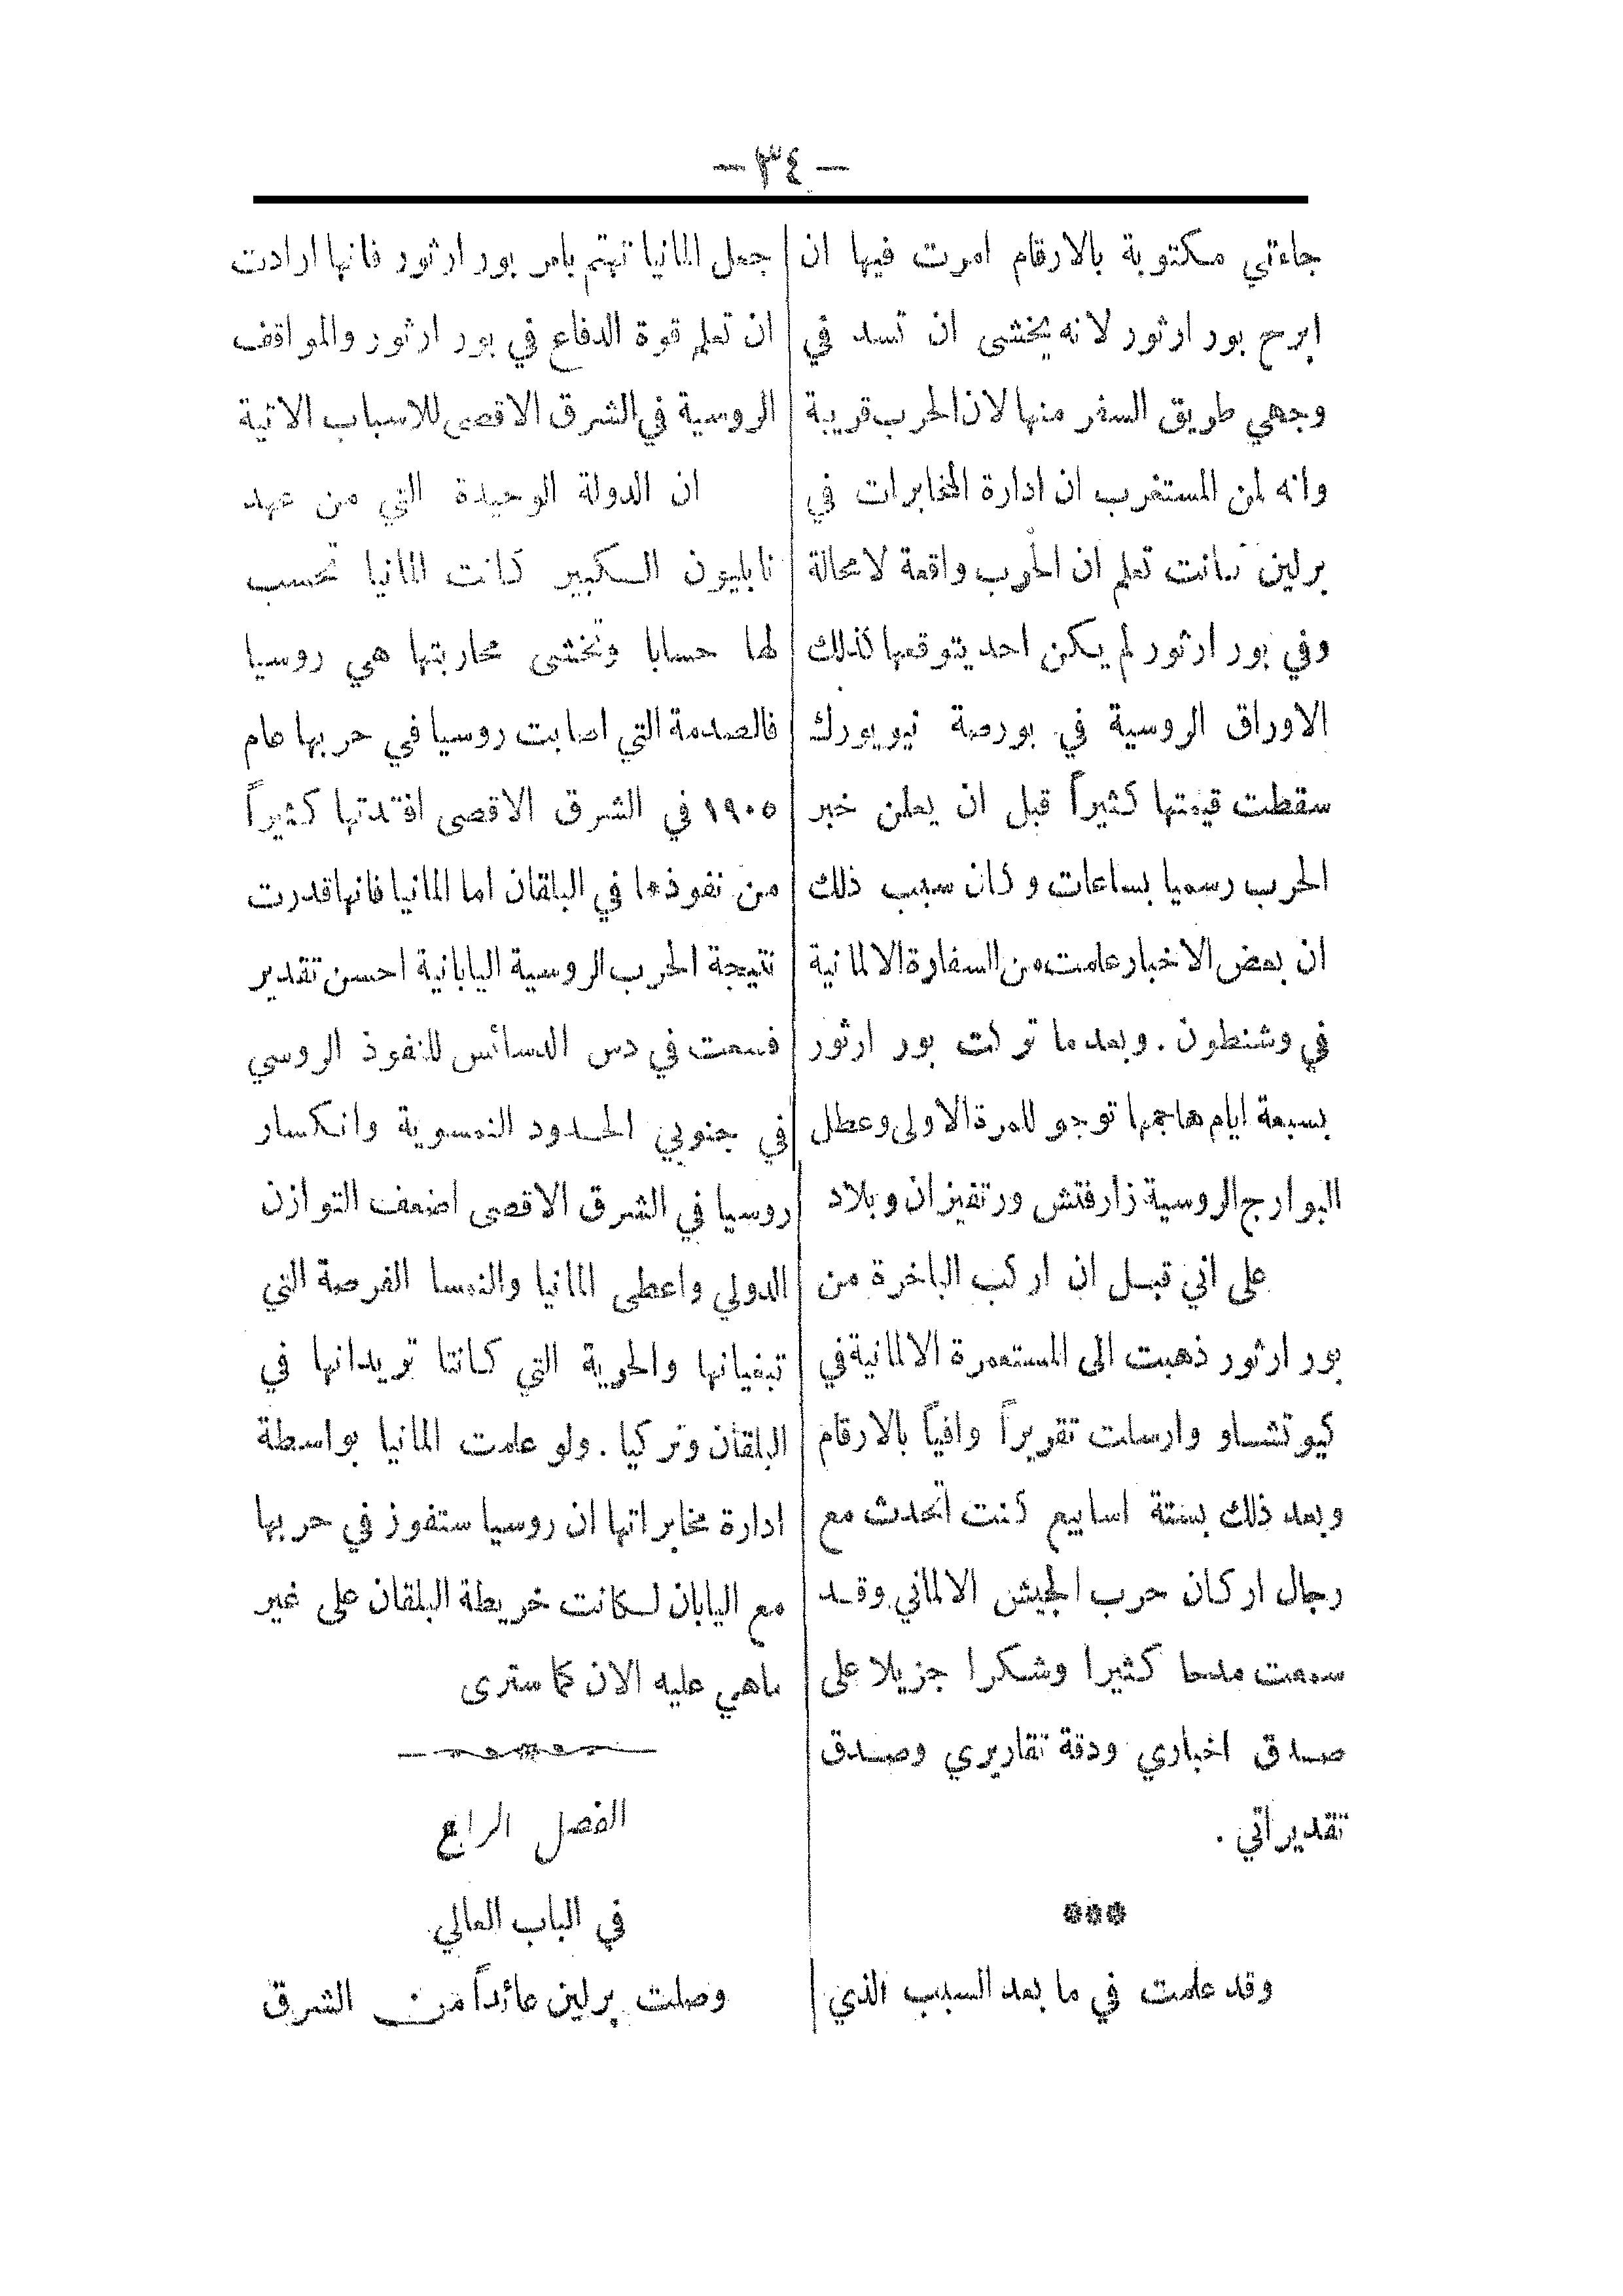 — ٣٤ —
جاءتني مكتوبة بالارقام امرت فيها ان
ابرح بور ارثور لانه يخشى ان تسد في
وجهي طريق السفر منها لان الحرب قريبة
وانه لمن المستغرب ان ادارة المخابرات في
برلين كانت تعلم ان الحرب واقعة لا محالة
وفي بور ارثور لم يكن احد يتوقعها كذلك
الاوراق الروسية في بورصة نيويورك
سقطت قيمتها كثيراً قبل ان يعلن خبر
الحرب رسميا بساعات وكان سبب ذلك
ان بعض الاخبار علمت من السفارة الالمانية
في وشنطون . وبعد ما تركت بور ارثور
بسبعة ايام هاجمها توجو للمرة الاولى وعطل
البوارج الروسية زارفتش ورتفيزان وبلاد
على اني قبل ان اركب الباخرة من
بور ارثور ذهبت الى المستعمرة الالمانية في
كيوتشاو وارسلت تقريراً وافياً بالارقام
وبعد ذلك بستة اسابيع كنت اتحدث مع
رجال اركان حرب الجيش الالماني وقد
سمعت مدحا كثيرا وشكرا جزيلا على
صدق اخباري ودقة تقاريري وصدق
تقديراتي .
***
وقد علمت في ما بعد السبب الذي
جعل المانيا تهتم بامر بور ارثور فانها ارادت
ان تعلم قوة الدفاع في بور ارثور والمواقف
الروسية في الشرق الاقصى للاسباب الاتية
ان الدولة الوحيدة التي من عهد
نابليون الكبير كانت المانيا تحسب
لها حسابا وتخشى محاربتها هي روسيا
فالصدمة التي اصابت روسيا في حربها عام
١٩٠٥ في الشرق الاقصى افقدتها كثيراً
من نفوذها في البلقان اما المانيا فانها قدرت
نتيجة الحرب الروسية اليابانية احسن تقدير
فسعت في دس الدسائس للنفوذ الروسي
في جنوبي الحدود النمسوية وانكسار
روسيا في الشرق الاقصى اضعف التوازن
الدولي واعطى المانيا والنمسا الفرصة التي
تبغيانها والحرية التي كانتا تريدانها في
البلقان وتركيا . ولو علمت المانيا بواسطة
ادارة مخابراتها ان روسيا ستفوز في حربها
مع اليابان لكانت خريطة البلقان على غير
ماهي عليه الان كما سترى
الفصل الرابع
في الباب العالي
وصلت برلين عائداً من الشرق